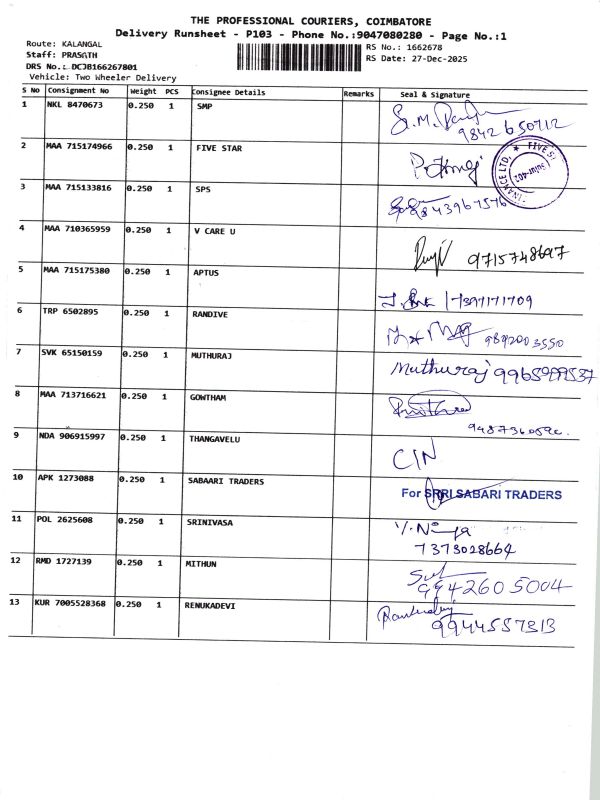 THE PROFESSIONAL COURIERS, COIMBATORE
Delivery Runsheet - P103 - Phone No.:9047080280 - Page No.:1
Route: KALANGAL
RS No.: 1662678
Staff: PRASATH
RS Date: 27-Dec-2025
DRS No.: DCJB166267801
Vehicle: Two Wheeler Delivery
S No Consignment No Weight PCS Consignee Details Remarks Seal & Signature
1 NKL 8470673 0.250 1 SMP
9842650712
2 MAA 715174966 0.250 1 FIVE STAR
3 MAA 715133816 0.250 1 SPS
9843967576
4 MAA 710365959 0.250 1 V CARE U
9715748697
5 MAA 715175380 0.250 1 APTUS
7397171709
6 TRP 6502895 0.250 1 RANDIVE
9892003550
7 SVK 65150159 0.250 1 MUTHURAJ Muthuraj
8 MAA 713716621 0.250 1 GOWTHAM
9 NDA 906915997 0.250 1 THANGAVELU
10 APK 1273088 0.250 1 SABAARI TRADERS For SRRI SABARI TRADERS
11 POL 2625608 0.250 1 SRINIVASA
7373028664
12 RMD 1727139 0.250 1 MITHUN
9942605004
13 KUR 7005528368 0.250 1 RENUKADEVI
9944557313